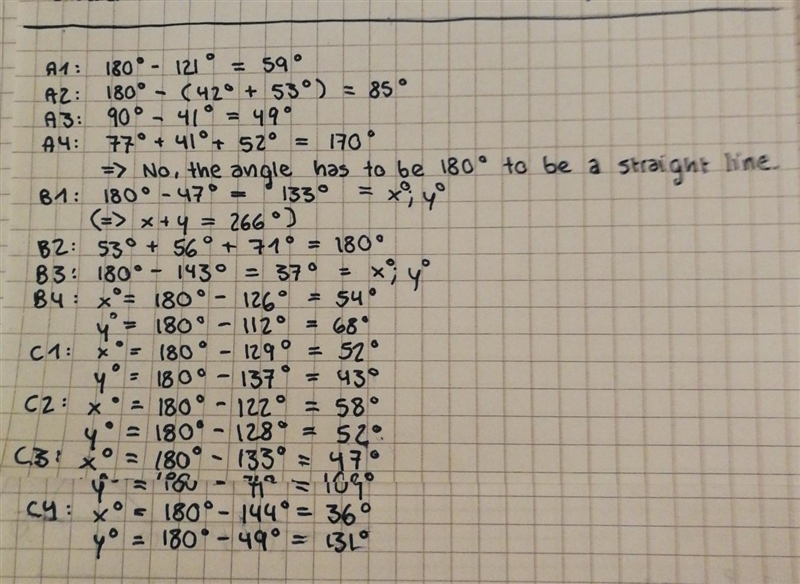 A1: 180° - 121° = 59°
A2: 180° - (42° + 53°) = 85°
A3: 90° - 41° = 49°
A4: 77° + 41° + 52° = 170°
=> No, the angle has to be 180° to be a straight line.
B1: 180° - 47° = 133° = x°, y°
(=> x + y = 266°)
B2: 53° + 56° + 71° = 180°
B3: 180° - 143° = 37° = x°, y°
B4: x° = 180° - 126° = 54°
y° = 180° - 112° = 68°
C1: x° = 180° - 129° = 52°
y° = 180° - 137° = 43°
C2: x° = 180° - 122° = 58°
y° = 180° - 128° = 52°
C3: x° = 180° - 133° = 47°
y° = 180 - = 109°
C4: x° = 180° - 144° = 36°
y° = 180° - 49° = 131°